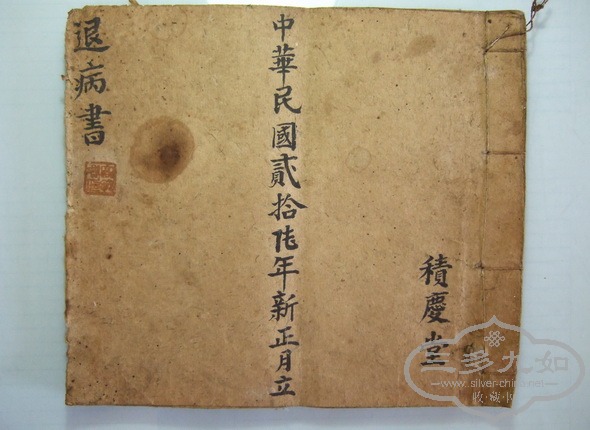 積慶堂
中華民國貳拾陆年新正月立
退病書
三多九如
www.silver-china.net